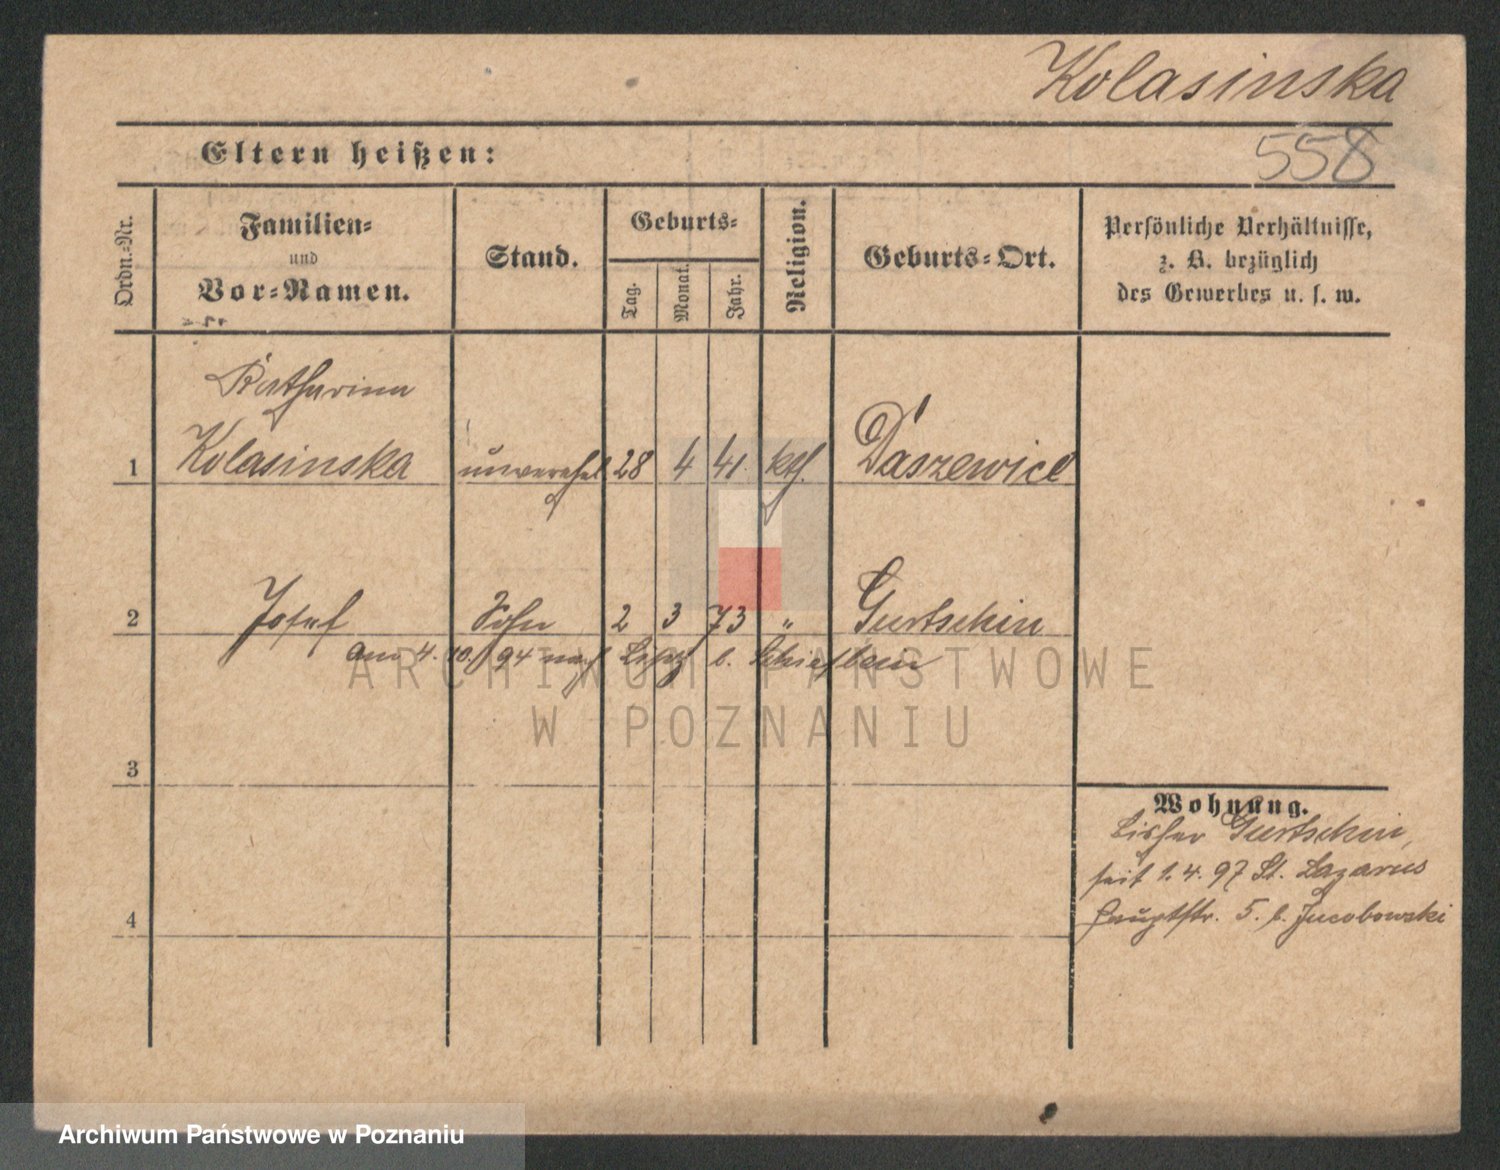 Kolasinska
558
Eltern heißen:
Ordn.-Nr.
Familien-
und
Vor-Namen.
Stand.
Geburts-
Tag.
Monat.
Jahr.
Religion.
Geburts-Ort.
Persönliche Verhältnisse,
z. B. bezüglich
des Gewerbes u. s. w.
Katharina
1 Kolasinska unverehel 28 4 41. kth. Daszewice
2 Josef Sohn 2 3 73 " Gurtschin
am 4. 10. 94 nach b. Schiefbein
ARCHIWUM PAŃSTWOWE
W POZNANIU
3
Wohnung.
bisher Gurtschin,
seit 1. 4. 97 St. Lazarus
Hauptstr. 5. b. Jacobowski
4
Archiwum Państwowe w Poznaniu